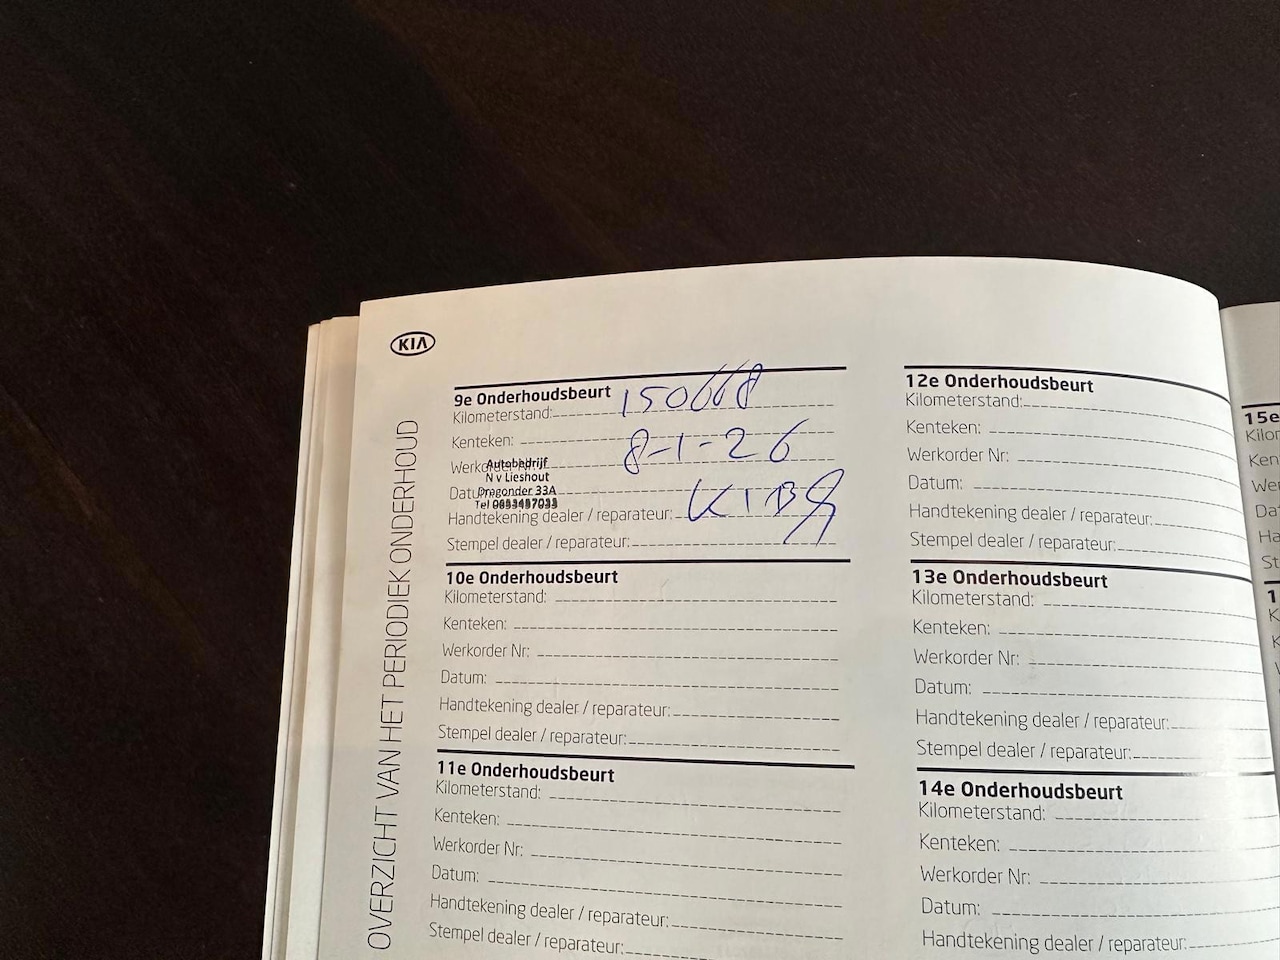 KIA
OVERZICHT VAN HET PERIODIEK ONDERHOUD
9e Onderhoudsbeurt
Kilometerstand: 150668
Kenteken: 8-1-26
Autobedrijf
N v Lieshout
Dragonder 33A
Tel
Handtekening dealer / reparateur:
Stempel dealer / reparateur:
10e Onderhoudsbeurt
Kilometerstand:
Kenteken:
Werkorder Nr:
Datum:
Handtekening dealer / reparateur:
Stempel dealer / reparateur:
11e Onderhoudsbeurt
Kilometerstand:
Kenteken:
Werkorder Nr:
Datum:
Handtekening dealer / reparateur:
Stempel dealer / reparateur:
12e Onderhoudsbeurt
Kilometerstand:
Kenteken:
Werkorder Nr:
Datum:
Handtekening dealer / reparateur:
Stempel dealer / reparateur:
13e Onderhoudsbeurt
Kilometerstand:
Kenteken:
Werkorder Nr:
Datum:
Handtekening dealer / reparateur:
Stempel dealer / reparateur:
14e Onderhoudsbeurt
Kilometerstand:
Kenteken:
Werkorder Nr:
Datum:
Handtekening dealer / reparateur:
15e